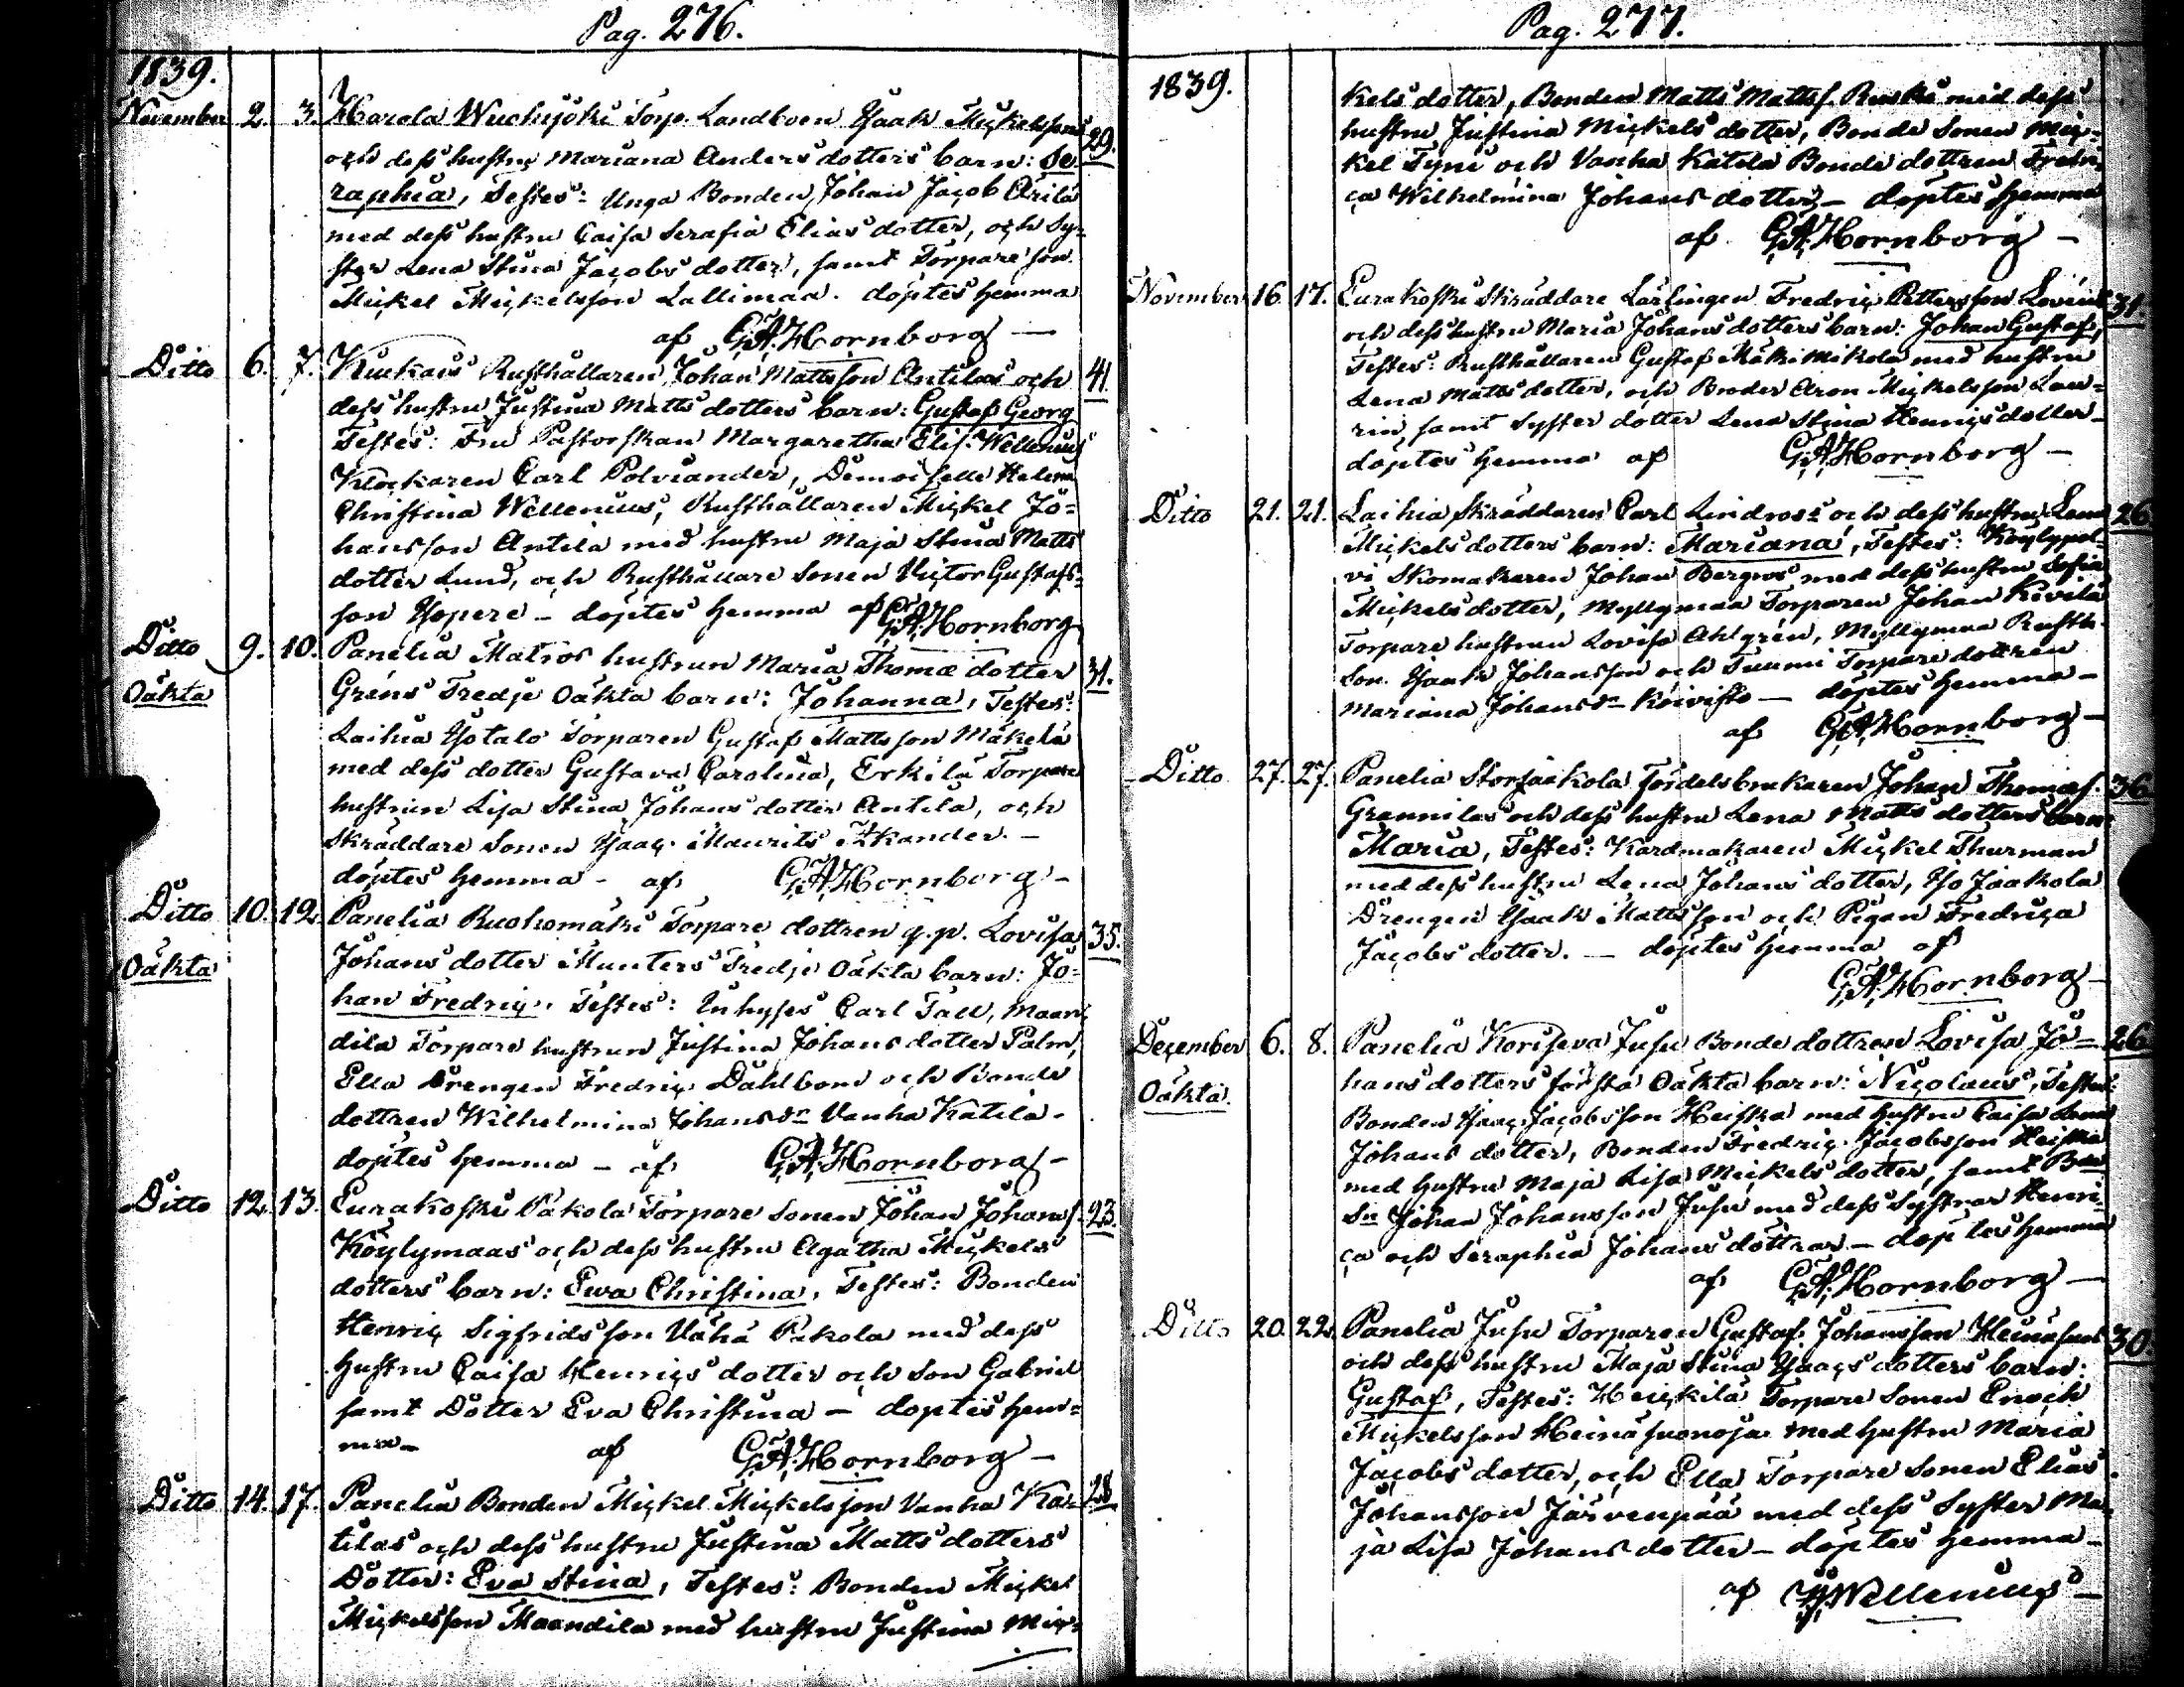 Pag. 276.
1839.
November 2. 3. Harola Wuohijoki Torp. Landboen Isaak Mickelssons 29.
och dess hustru Mariana Anders dotters barn: Se-
raphia, Testes: Unga Bonden Johan Jacob Arila
med dess hustru Caisa Serafia Elias dotter, och Sy-
ster Lena Stina Jacobs dotter, samt Torpare son
Mickel Mickelsson Lallimaa. döptes hemma
af G.A. Hornborg —
Ditto 6. 7. Kiukais Rusthållaren Johan Mattsson Antilas och 41.
dess hustru Justina Matts dotters barn: Gustaf Georg
Testes: Fru Pastorskan Margaretha Elis. Wellenius
Klockaren Carl Polviander, Demoiselle Helena
Christina Wellenius, Rusthållaren Mickel Jo-
hansson Antila med hustru Maja Stina Matts
dotter Lund, och Rusthållare Sonen Victor Gustafs-
son Yopere – döptes hemma af G.A. Hornborg
Ditto 9. 10. Panelia Matros hustrun Maria Thomæ dotter 31.
Oäkta Gréns Tredje Oäkta barn: Johanna, Testes:
Laihia Isotalo Torparen Gustaf Mattsson Mäkelä
med dess dotter Gustava Carolina, Erkilä Torpare
hustrun Lisa Stina Johans dotter Antila, och
Skräddare Sonen Isaac Maurits Ekander. –
döptes hemma – af G.A. Hornborg –
Ditto 10. 12. Panelia Ruohomäki Torpare dottren q.p. Lovisa 35.
Oäkta Johans dotter Munters Tredje Oäkta barn: Jo-
han Fredric, Testes: Inhyses Carl Tall, Maan-
dila Torpare hustrun Justina Johans dotter Palm,
Ella Drengen Fredric Dahlbom och Bonde
dottren Wilhelmina Johans dr Vanha Katila.
döptes hemma – af G.A. Hornborg –
Ditto 12. 13. Eurakoski Päkola Torpare Sonen Johan Johans s. 23.
Köylymaas och dess hustru Agatha Mickels
dotters barn: Ewa Christina, Testes: Bonden
Henric Sigfridsson Vähä Päkola med dess
hustru Caisa Henrics dotter och Son Gabriel
samt Dotter Eva Christina – döptes hem-
ma – af G.A. Hornborg –
Ditto 14. 17. Panelia Bonden Mickel Mickelsson Vanha Ka- 28.
tilas och dess hustru Justina Matts dotters
Dotter: Eva Stina, Testes: Bonden Mickel
Mickelsson Maandila med hustru Justina Mic-
Pag. 277.
1839.
kels dotter, Bonden Matts Matts s. Ruska med dess
hustru Justina Mickels dotter, Bonde Sonen Mic-
kel Tyni och Vanha Katila Bonde dottren Fredri-
ca Wilhelmina Johans dotter – döptes hemma
af G.A. Hornborg –
November 16. 17. Eurakoski Skräddare Lärlingen Fredric Pettersson Lovéns 31.
och dess hustru Maria Johans dotters barn: Johan Gustaf,
Testes: Rusthållaren Gustaf Mäki Mikola med hustru
Lena Matts dotter, och Broder Aron Mickelsson Lau-
rin, samt Syster dotter Lena Stina Henricsdotter –
döptes hemma af G.A. Hornborg –
Ditto 21. 21. Laihia Skräddaren Carl Lindross och dess hustru Lena 26.
Mickels dotters barn: Mariana, Testes: Köylypol-
vi Skomakaren Johan Bergros med dess hustru Sofia
Mickels dotter, Myllymaa Torparen Johan Kivilä
Torpare hustrun Lovisa Ahlgrén, Myllymaa Rusth.
Son. Isaak Johansson och Tuomi Torpare dottren
Mariana Johans dr Koivisto – döptes hemma –
af G.A. Hornborg –
Ditto 27. 27. Panelia Storjaakola Fördelsbrukaren Johan Thomæ s. 36.
Grannilas och dess hustru Lena Matts dotters barn:
Maria, Testes: Kardmakaren Mickel Thurman
med dess hustru Lena Johans dotter, Iso Jaakola
Drengen Isaak Mattsson och Pigan Fredrica
Jacobs dotter. — döptes hemma af
G.A. Hornborg –
December 6. 8. Panelia Koriseva Jusu Bonde dottren Lovisa Jo- 26.
Oäkta. hans dotters första Oäkta barn: Nicolaus, Testes:
Bonden Isaac Jacobsson Heiska med hustru Caisa Lena
Johans dotter, Bonden Fredric Jacobsson Heiska
med hustru Maja Lisa Mickels dotter, samt Bde
Sn Johan Johansson Jusu med dess Systrar Henri-
ca och Seraphia Johans döttrar – döptes hemma
af G.A. Hornborg –
Ditto 20. 22. Panelia Jusu Torparen Gustaf Johansson Heinäsuos 30.
och dess hustru Maja Stina Isaacs dotters barn:
Gustaf, Testes: Heickilä Torpare Sonen Enoch
Mickelsson Heinäsuonoja med hustru Maria
Jacobs dotter, och Ella Torpare Sonen Elias
Johansson Järvenpää med dess Syster Ma-
ja Lisa Johans dotter – döptes hemma –
af Wellenius –